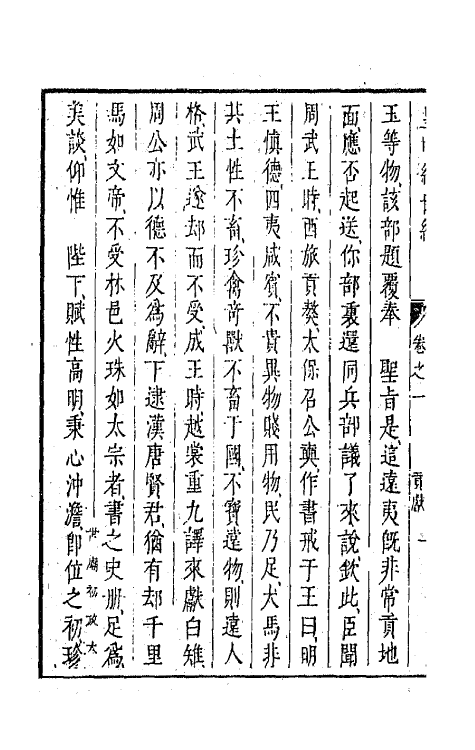 皇明經世編
卷之一
貢獻 一
玉等物、該部題覆奉　聖旨是、這遠夷既非常貢地
面、應否起送、你部裏還同兵部議了來說、欽此、臣聞
周武王時、西旅貢獒、太保召公奭作書戒于王曰、明
王慎德、四夷咸賓、不貴異物賤用物、民乃足、犬馬非
其土性不畜、珍禽奇獸不畜于國、不寶遠物、則遠人
格、武王遂却而不受、成王時、越裳重九譯來獻白雉
周公亦以德不及為辭、下逮漢唐賢君、猶有却千里
馬如文帝、不受林邑火珠如太宗者、書之史册、足為
美談、仰惟　陛下、賦性高明、秉心沖澹、即位之初、珍
世廟初政大